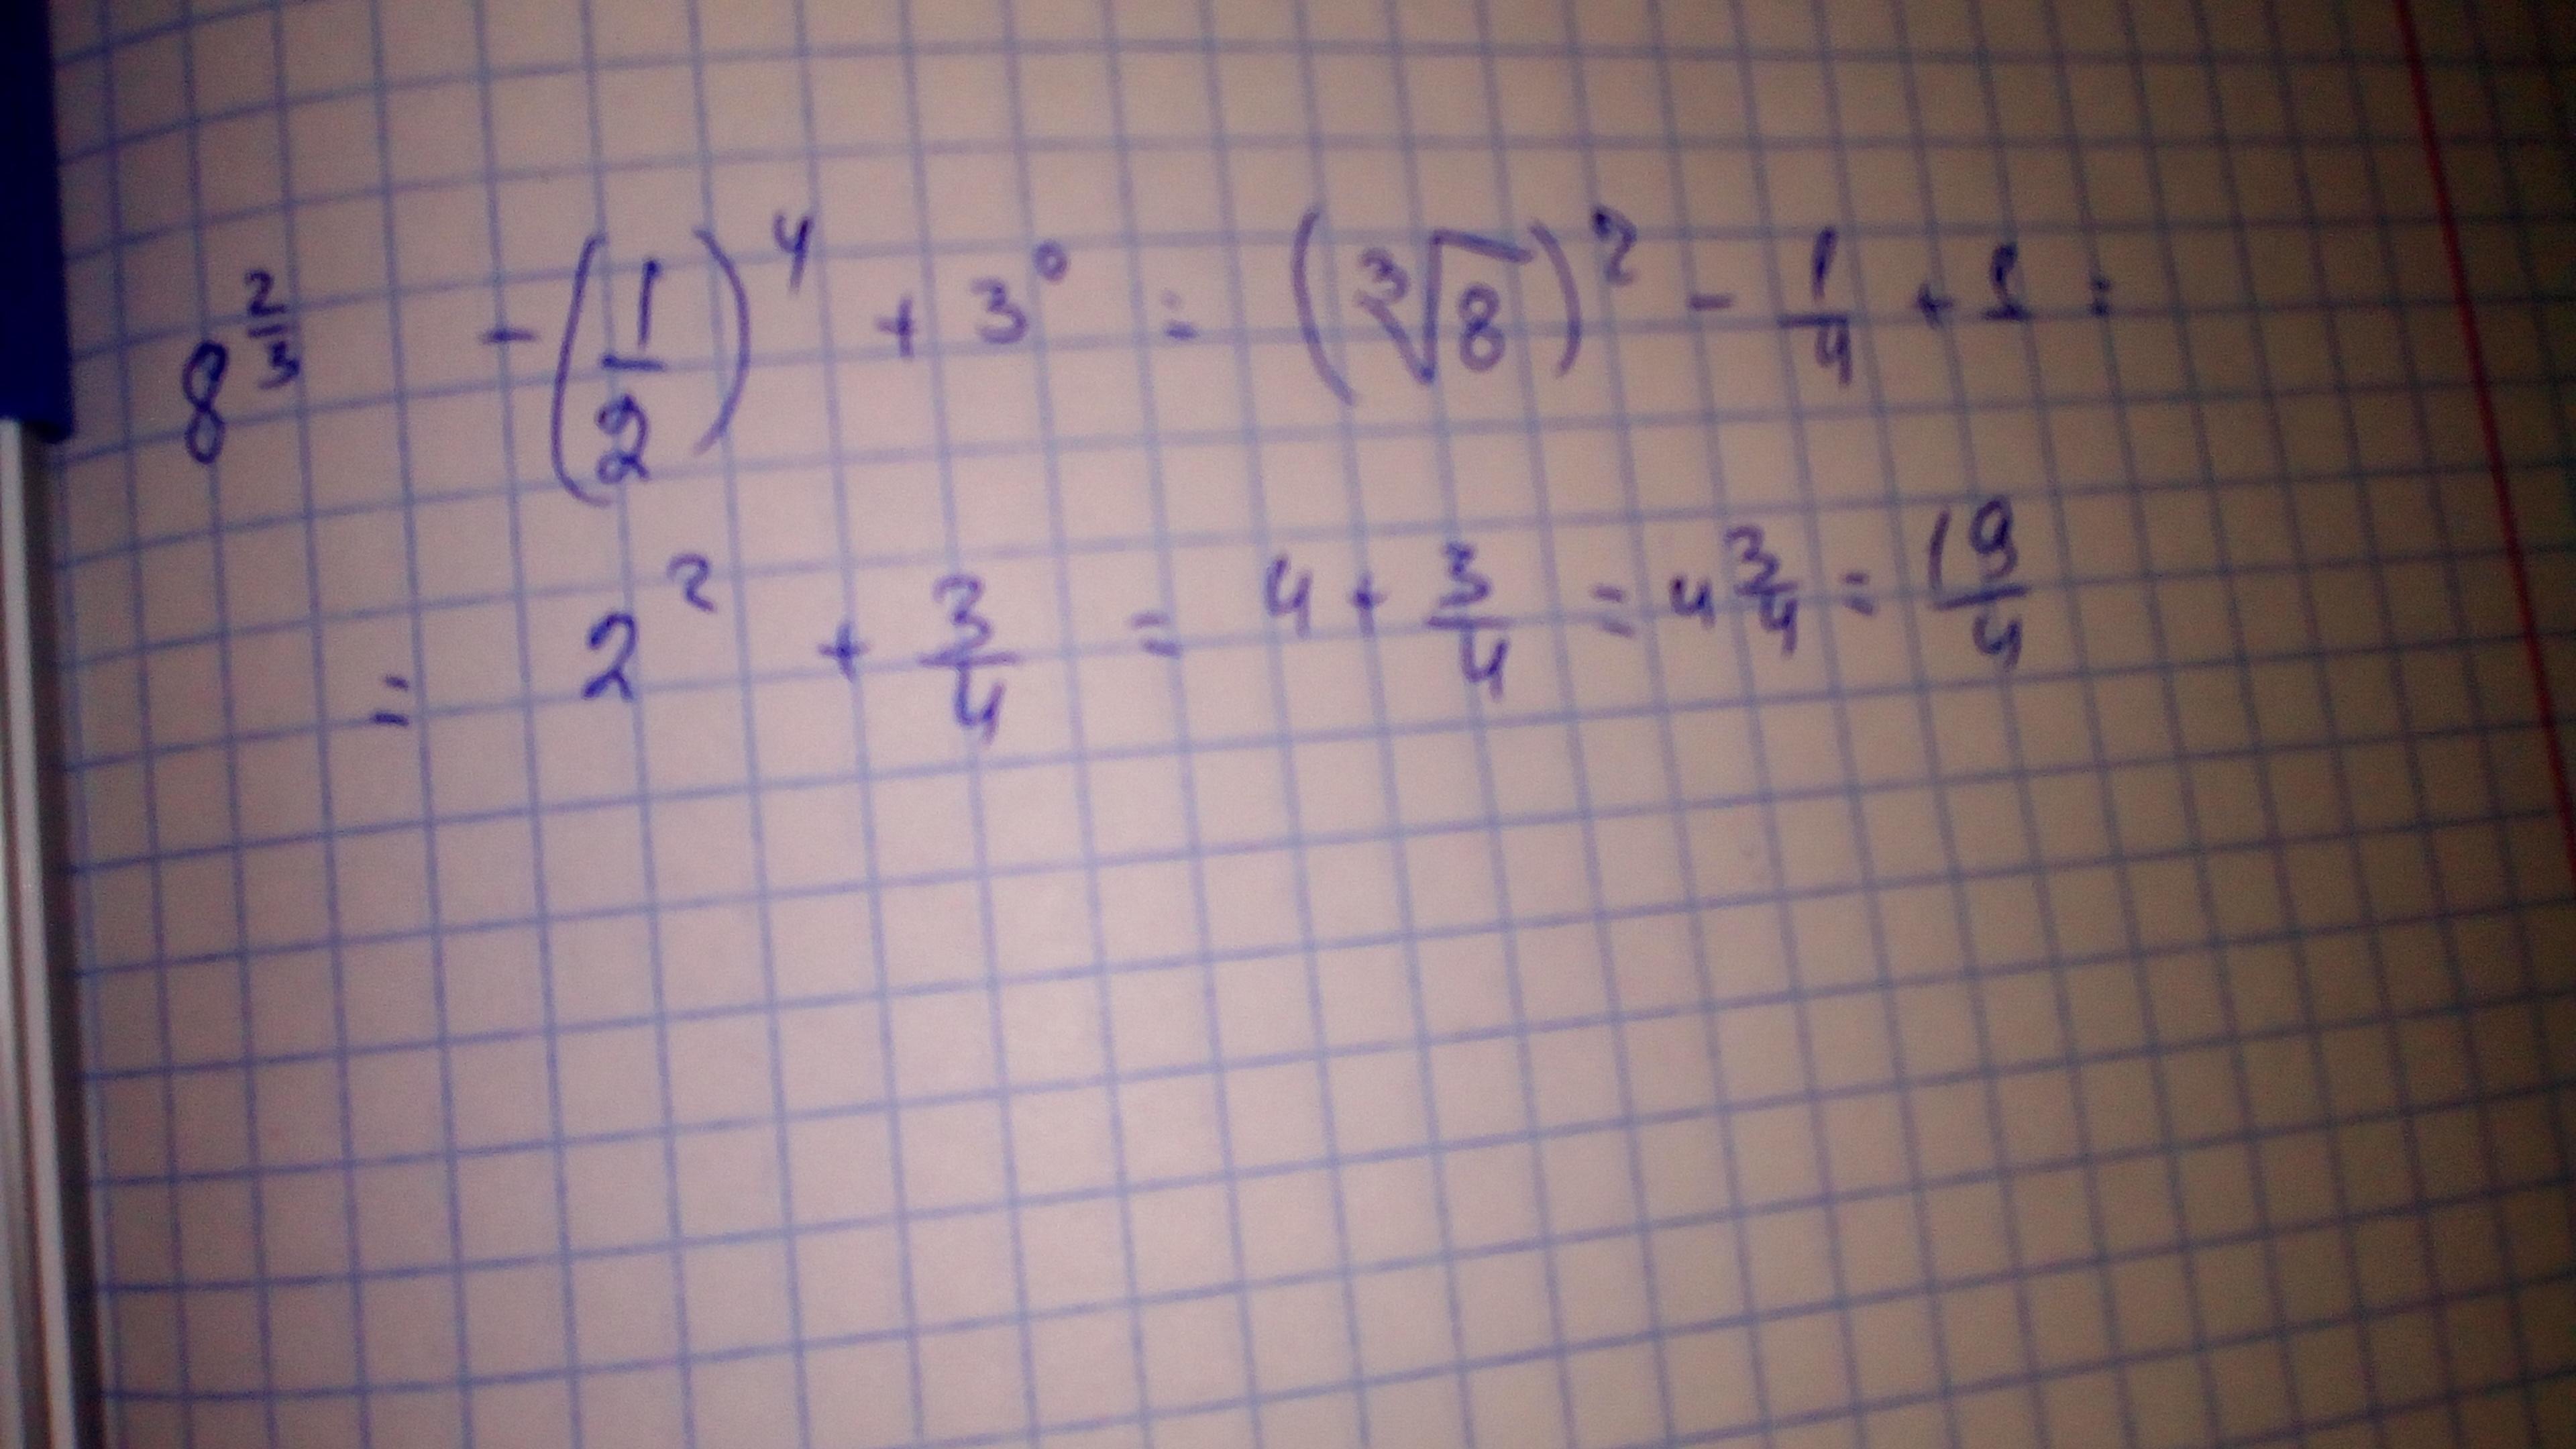 8^{2/3} - (1/2)^4 + 3^0 = (∛8)^2 - 1/4 + 1 =
= 2^2 + 3/4 = 4 + 3/4 = 4 3/4 = 19/4